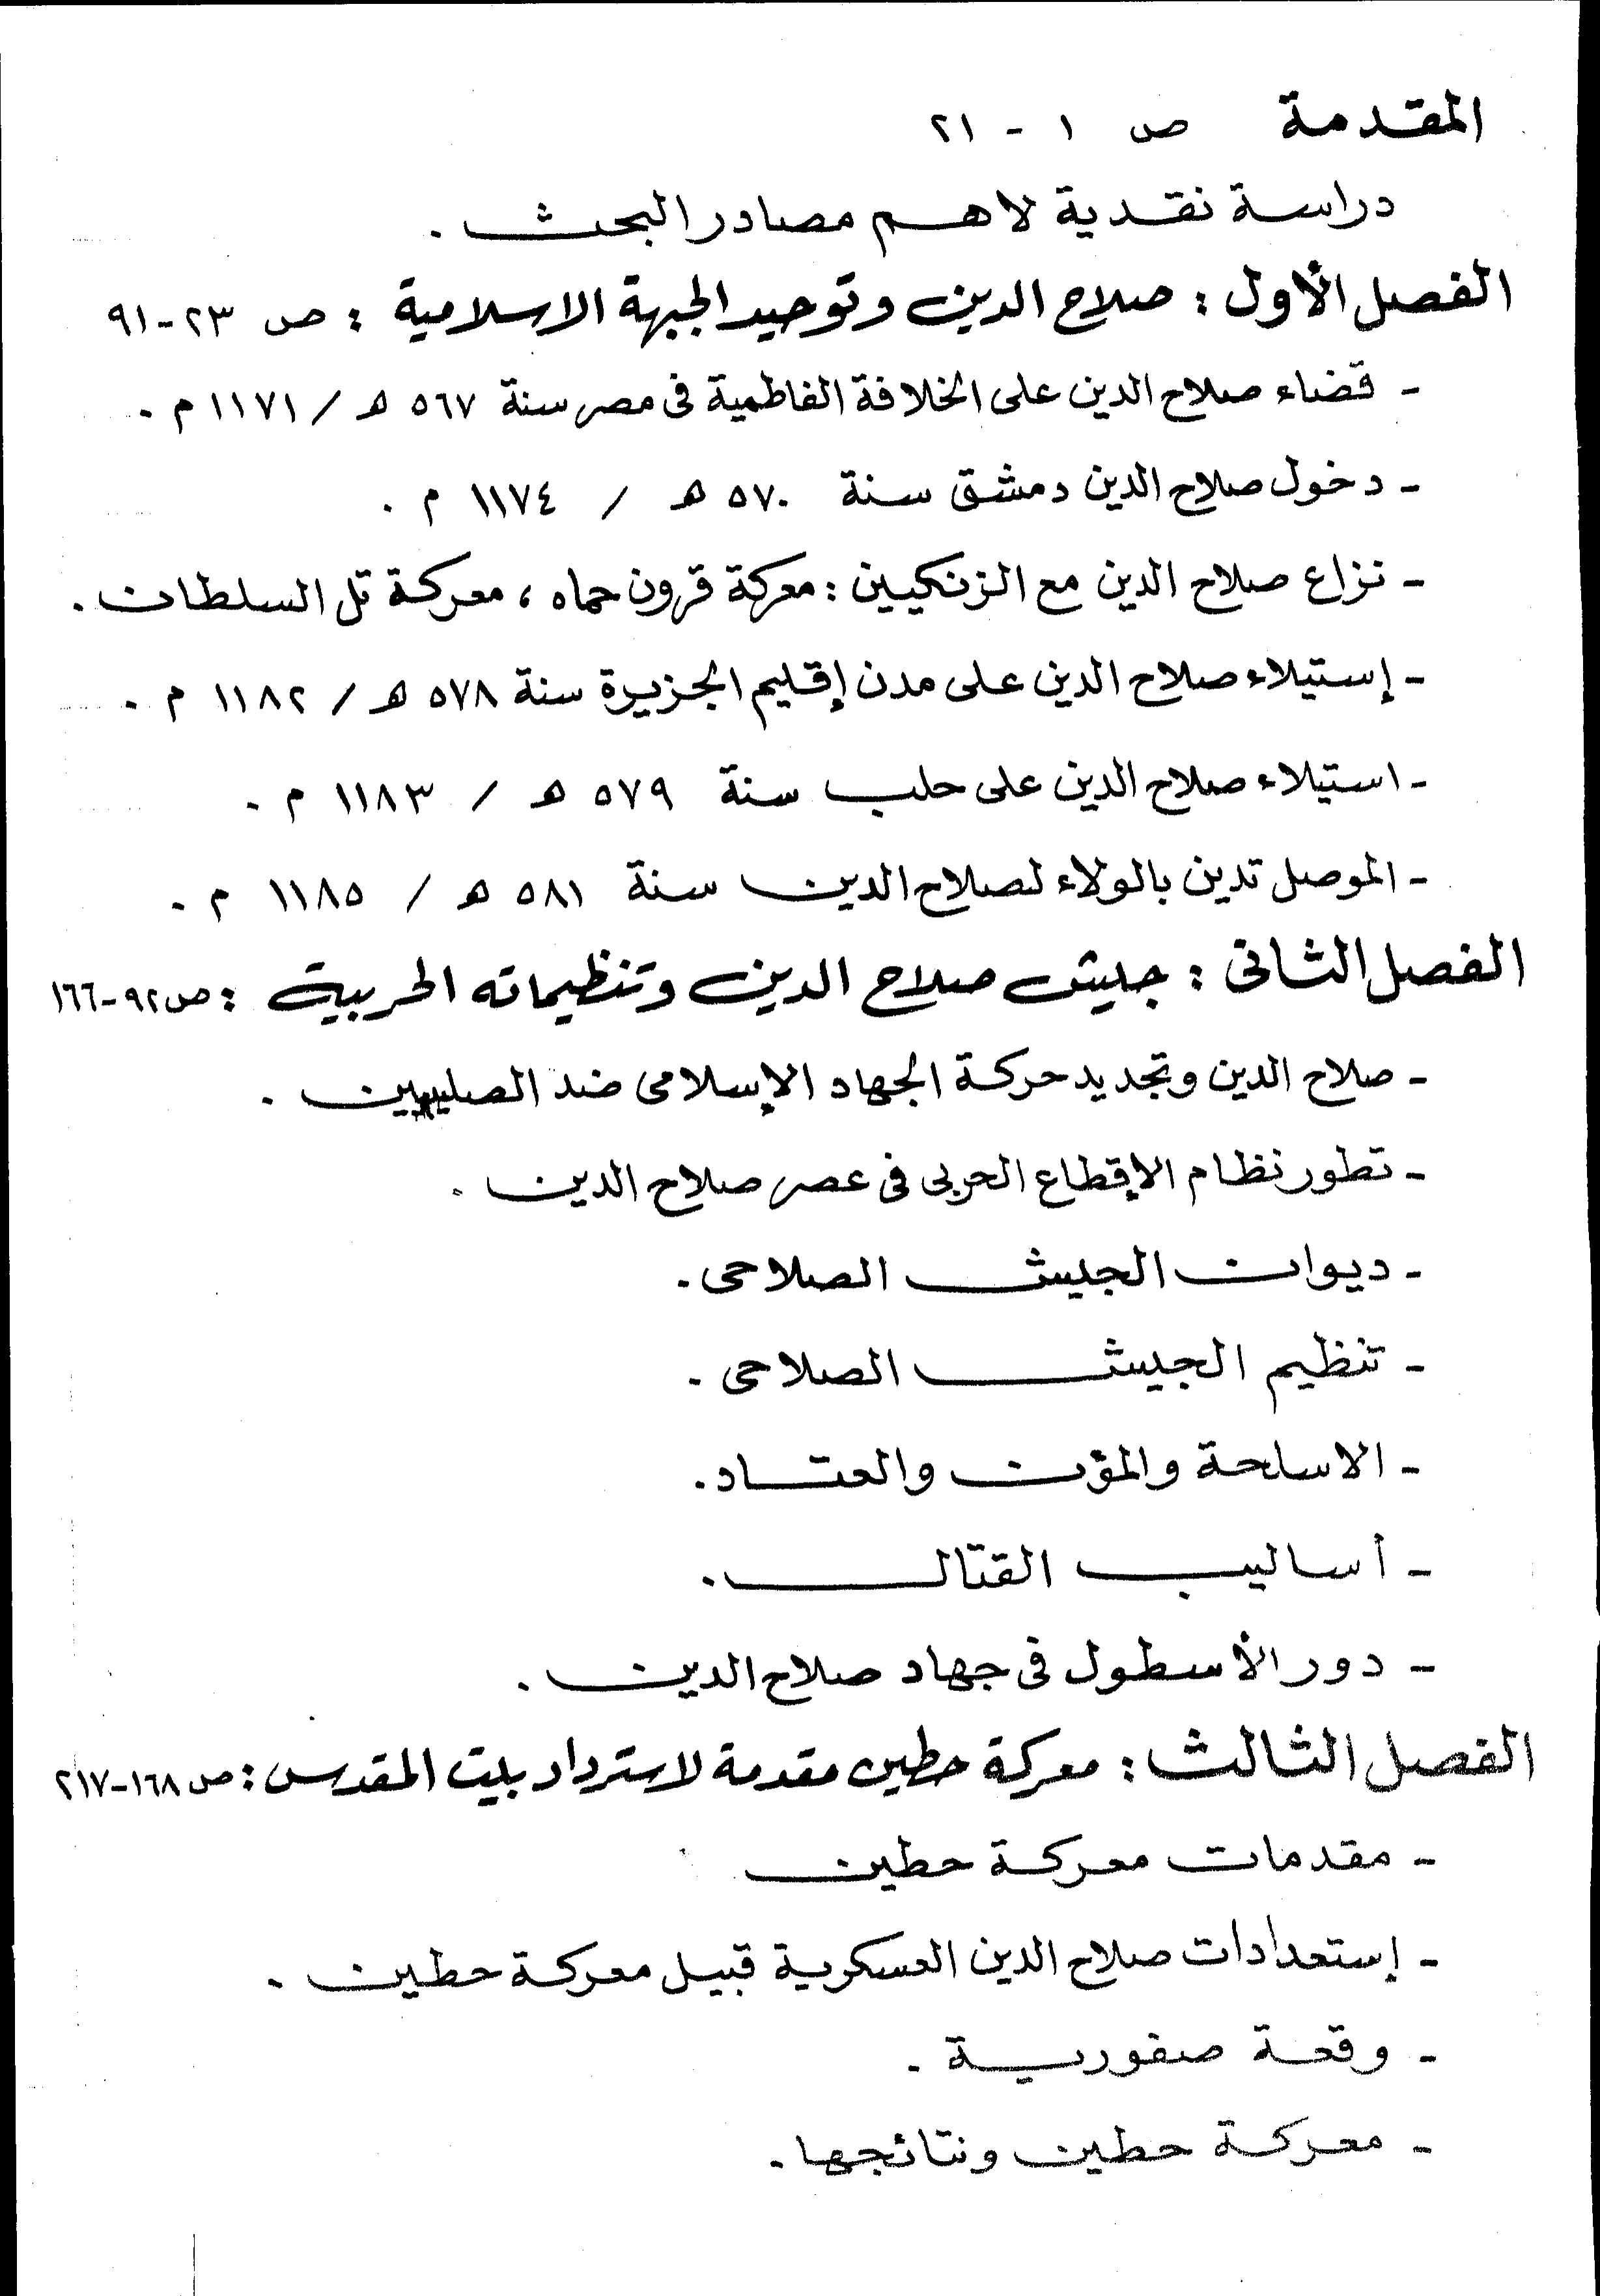 المقدمة ص ١ - ٢١
دراسة نقدية لاهم مصادر البحث .
الفصل الأول : صلاح الدين وتوحيد الجبهة الاسلامية : ص ٢٣-٩١
- قضاء صلاح الدين على الخلافة الفاطمية فى مصر سنة ٥٦٧ هـ / ١١٧١ م .
- دخول صلاح الدين دمشق سنة ٥٧٠ هـ / ١١٧٤ م .
- نزاع صلاح الدين مع الزنكيين : معركة قرون حماه ، معركة تل السلطان .
- إستيلاء صلاح الدين على مدن إقليم الجزيرة سنة ٥٧٨ هـ / ١١٨٢ م .
- استيلاء صلاح الدين على حلب سنة ٥٧٩ هـ / ١١٨٣ م .
- الموصل تدين بالولاء لصلاح الدين سنة ٥٨١ هـ / ١١٨٥ م .
الفصل الثانى : جيش صلاح الدين وتنظيماته الحربية : ص ٩٢-١٦٦
- صلاح الدين وتجديد حركة الجهاد الإسلامى ضد الصليبيين .
- تطور نظام الإقطاع الحربى فى عصر صلاح الدين .
- ديوان الجيش الصلاحى .
- تنظيم الجيش الصلاحى .
- الاسلحة والمؤن والعتاد .
- أساليب القتال .
- دور الأسطول فى جهاد صلاح الدين .
الفصل الثالث : معركة حطين مقدمة لاسترداد بيت المقدس : ص ١٦٨-٢١٧
- مقدمات معركة حطين
- إستعدادات صلاح الدين العسكرية قبيل معركة حطين .
- وقعة صفورية .
- معركة حطين ونتائجها .